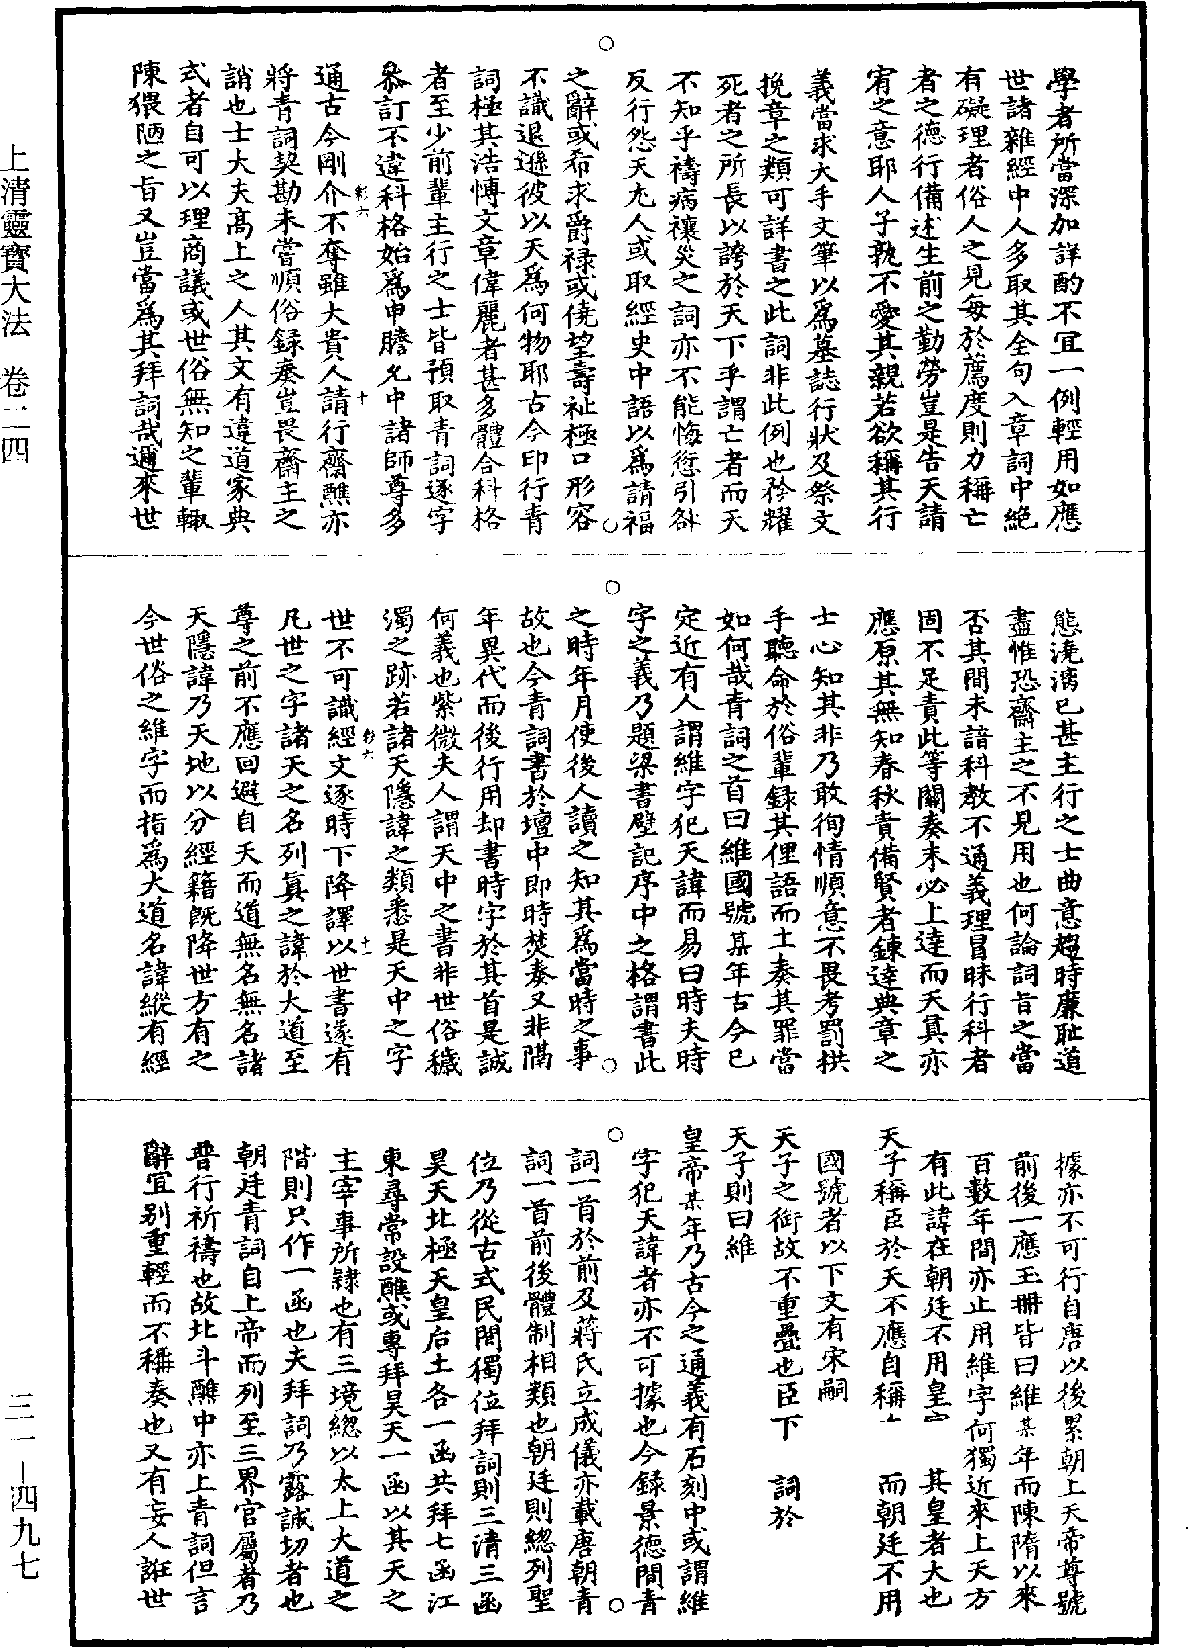 上清靈寶大法　卷二四
學者所當深加詳酌不宜一例輕用如應
世諸雜經中人多取其全句入章詞中絶
有礙理者俗人之見每於薦度則力稱亡
者之德行備述生前之勤勞豈是告天請
宥之意耶人子孰不愛其親若欲稱其行
義當求大手文筆以爲墓誌行狀及祭文
挽章之類可詳書之此詞非此例也矜耀
死者之所長以誇於天下乎謂亡者而天
不知乎禱病禳災之詞亦不能悔愆引咎
反行怨天尤人或取經史中語以爲請福
之辭或希求爵禄或僥望壽祉極口形容
不識退遜彼以天爲何物耶古今印行青
詞極其浩愽文章偉麗者甚多體合科格
者至少前輩主行之士皆預取青詞逐字
叅訂不違科格始爲申謄允中諸師尊多
通古今剛介不奪雖大貴人請行齋醮亦
將青詞契勘未嘗順俗録奏豈畏齋主之
誚也士大夫高上之人其文有違道家典
式者自可以理商議或世俗無知之輩輙
陳猥陋之旨又豈當爲其拜詞哉邇來世
態澆漓已甚主行之士曲意趨時廉耻道
盡惟恐齋主之不見用也何論詞旨之當
否其間未諳科教不通義理冒昧行科者
固不足責此等關奏未必上達而天真亦
應原其無知春秋責備賢者鍊達典章之
士心知其非乃敢徇情順意不畏考罰拱
手聽命於俗輩録其俚語而上奏其罪當
如何哉青詞之首曰維國號某年古今已
定近有人謂維字犯天諱而易曰時夫時
字之義乃題梁書壁記序中之格謂書此
之時年月使後人讀之知其爲當時之事
故也今青詞書於壇中即時焚奏又非隔
年異代而後行用却書時字於其首是誠
何義也紫微夫人謂天中之書非世俗穢
濁之跡若諸天隱諱之類悉是天中之字
世不可識經文逐時下降譯以世書遂有
凡世之字諸天之名列真之諱於大道至
尊之前不應回避自天而道無名無名諸
天隱諱乃天地以分經籍旣降世方有之
今世俗之維字而指爲大道名諱縱有經
據亦不可行自唐以後累朝上天帝尊號
前後一應玉冊皆曰維某年而陳隋以來
百數年間亦止用維字何獨近來上天方
有此諱在朝廷不用皇　其皇者大也
天子稱臣於天不應自稱　而朝廷不用
國號者以下文有宋嗣
天子之銜故不重疊也臣下　詞於
天子則曰維
皇帝某年乃古今之通義有石刻中或謂維
字犯天諱者亦不可據也今録景德間青
詞一首於前及蔣氏立成儀亦載唐朝青
詞一首前後體制相類也朝廷則緫列聖
位乃從古式民間獨位拜詞則三清三函
昊天北極天皇后土各一函共拜七函江
東尋常設醮或專拜昊天一函以其天之
主宰事所隷也有三境緫以太上大道之
階則只作一函也夫拜詞乃露誠切者也
朝廷青詞自上帝而列至三界官屬者乃
普行祈禱也故北斗醮中亦上青詞但言
辭宜别重輕而不稱奏也又有妄人誑世
三一—四九七